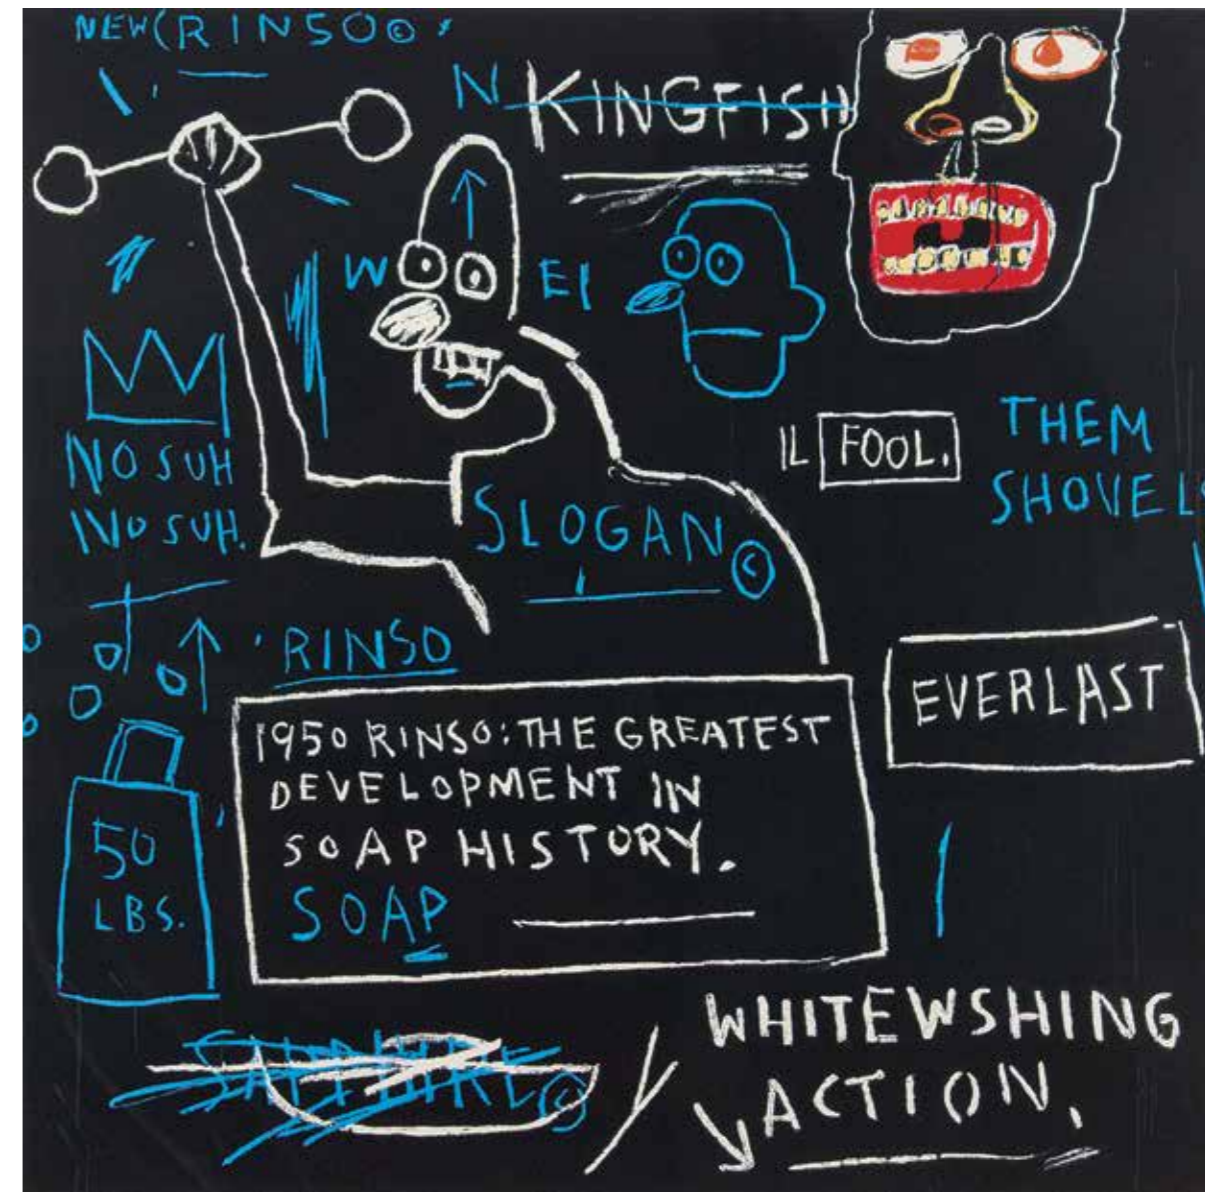 NEW(RINSO©
N KINGFISH
W EI
NO SUH
NO SUH.
IL FOOL.
THEM
SHOVEL
SLOGAN©
RINSO
EVERLAST
1950 RINSO: THE GREATEST
DEVELOPMENT IN
SOAP HISTORY.
SOAP
50
LBS.
WHITEWSHING
ACTION.